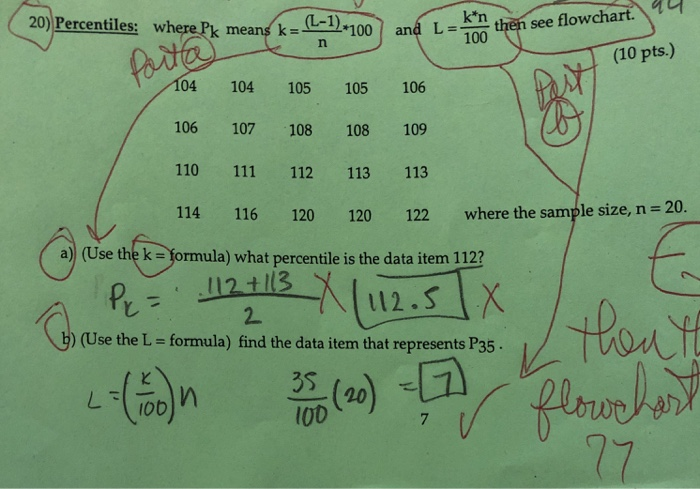 94
20) Percentiles: where Pk means k = (L-1)/n *100 and L = k*n/100 then see flowchart.
(10 pts.)
Part a
Part b
104 104 105 105 106
106 107 108 108 109
110 111 112 113 113
114 116 120 120 122 where the sample size, n = 20.
a) (Use the k = formula) what percentile is the data item 112?
Pk = 112+113/2 X 112.5 X
b) (Use the L = formula) find the data item that represents P35.
L = (k/100)n 35/100 (20) = 7 ✓
7
then
flowchart
??